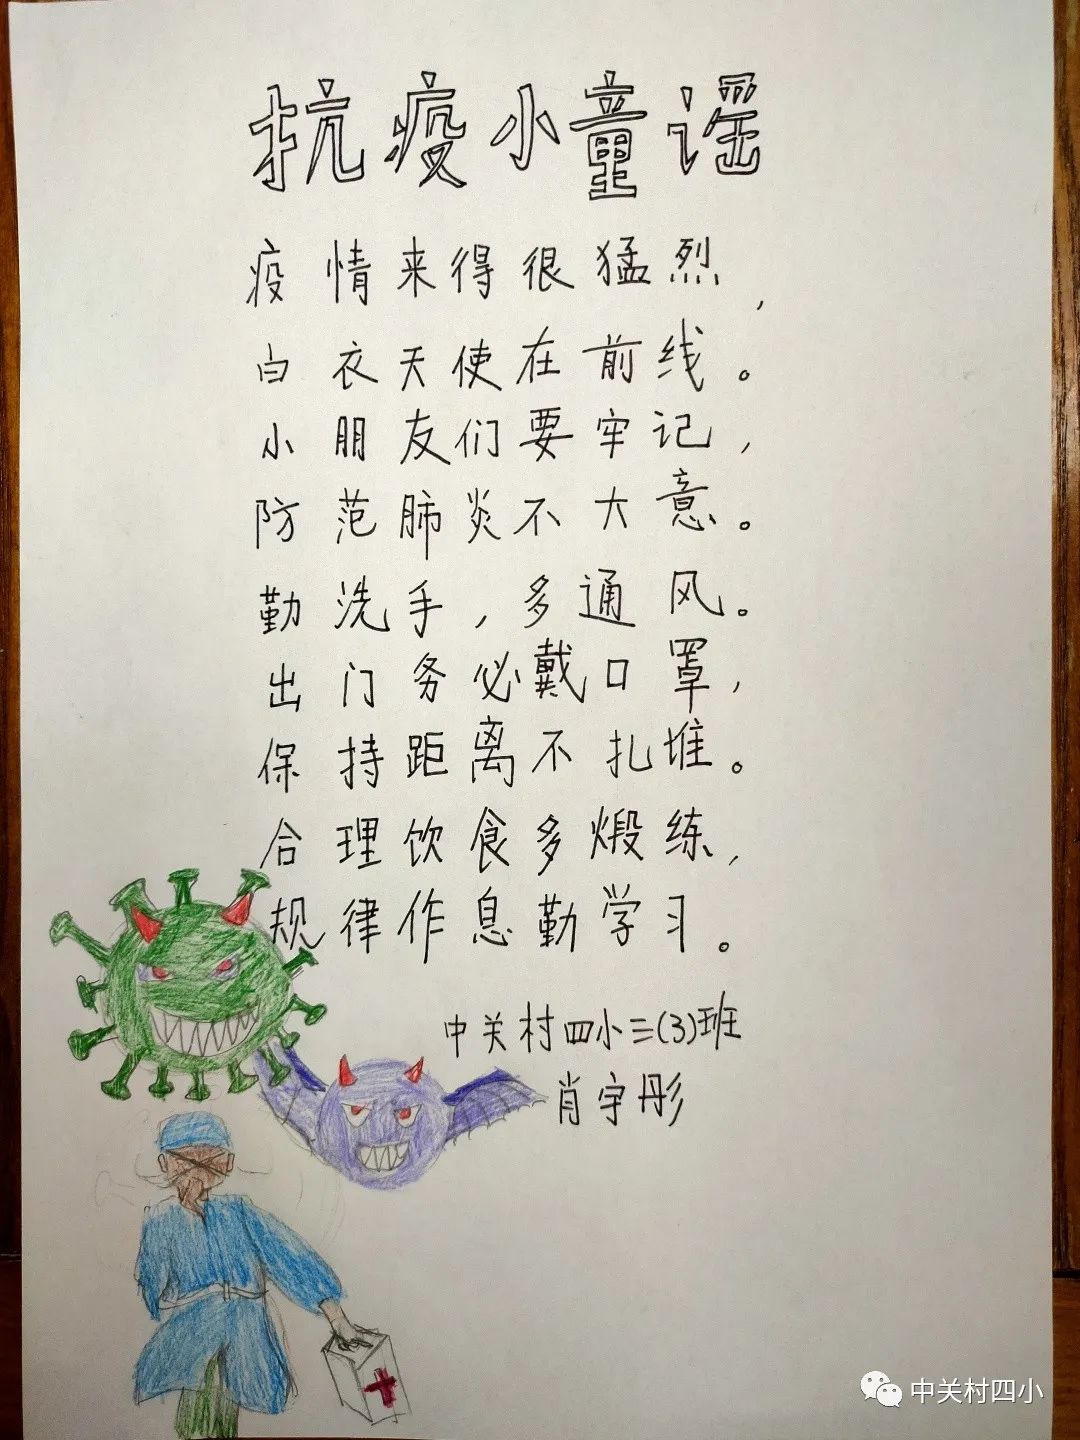 抗疫小童谣
疫情来得很猛烈，
白衣天使在前线。
小朋友们要牢记，
防范肺炎不大意。
勤洗手，多通风。
出门务必戴口罩，
保持距离不扎堆。
合理饮食多煅练，
规律作息勤学习。
中关村四小三(3)班
肖宇彤
中关村四小